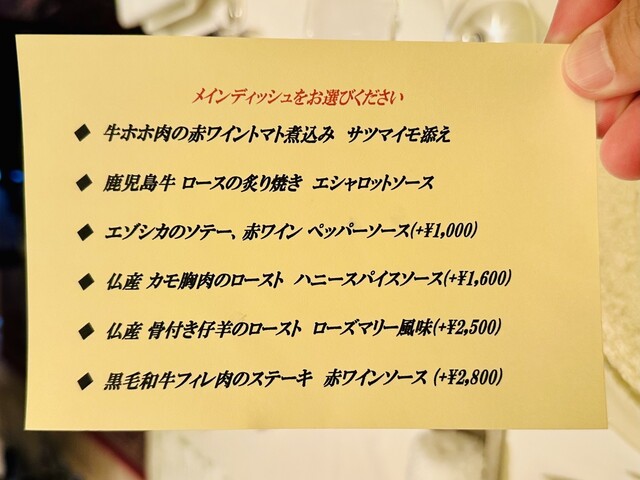 メインディッシュをお選びください
◆ 牛ホホ肉の赤ワイントマト煮込み サツマイモ添え
◆ 鹿児島牛 ロースの炙り焼き エシャロットソース
◆ エゾシカのソテー、赤ワイン ペッパーソース(+¥1,000)
◆ 仏産 カモ胸肉のロースト ハニースパイスソース(+¥1,600)
◆ 仏産 骨付き仔羊のロースト ローズマリー風味(+¥2,500)
◆ 黒毛和牛フィレ肉のステーキ 赤ワインソース (+¥2,800)